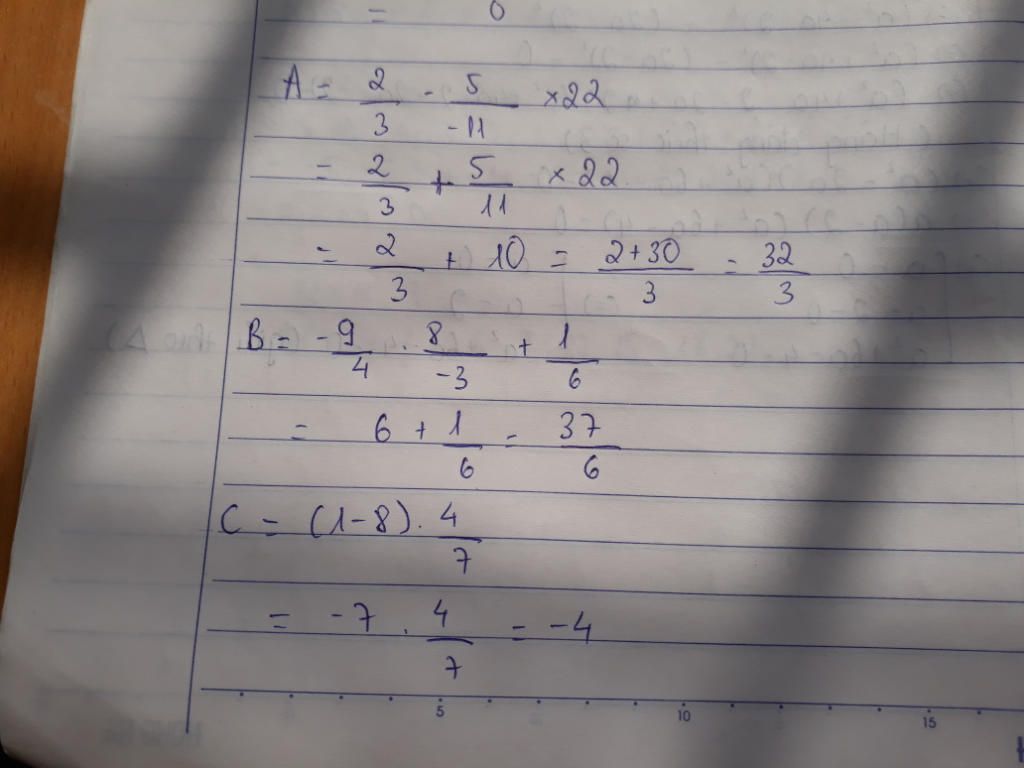 = 0
A = 2/3 - 5/-11 ×22
= 2/3 + 5/11 × 22
= 2/3 + 10 = 2+30/3 = 32/3
B = -9/4 . 8/-3 + 1/6
= 6 + 1/6 = 37/6
C = (1-8). 4/7
= -7 . 4/7 = -4
5 10 15